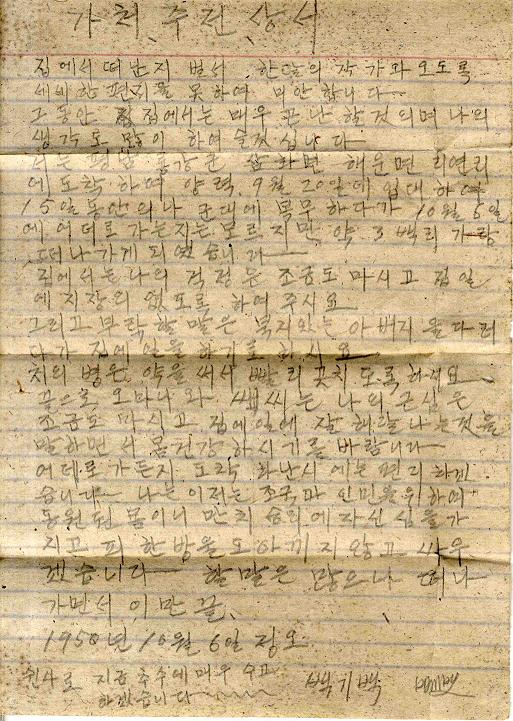 가친, 주전 상서
집에서 떠난지 벌서 한달의 각가와 오도록
세비한 편리을 못하여 미안합니다
그동안 집에서는 매우 곤난할것의며 나의
생각도 많이 하여슬것십니다
저는 평남 룡강군 삼화면 해운면 리연리
에 도착하여 양력 9월 20일에 입대하여
15일동안의나 군대에 복무하다가 10월 6일
에 어데로 가는지는 모르지만 약 3백리 가량
떠나가게 되였습니다
집에서는 나의 걱정는 조금도 마시고 집일
에 지장의 업도록 하여 주시요
그리고 부락할 말은 북지있는 아버지을 다리
다가 집에 일을 하기로 하시요
처의 병은 약을 써서 빨리 곳치도록 하시요
끝으로 오마니와 는 나의 근심은
조금도 마시고 집에일에 잘 해 나는것을
말하면서 몸건강 하시기를 바랍니다
어데로 가든지 도착 하난시에는 편리 하겠
습니다 나는 이저는 조국과 인민을 위하여
동원된 몸이니 만치 승리에 자신심을 가
지고 피 한방울도 아끼지 않고 싸우
겠습니다 할말은 많으나 떠나
가면서 이만 끝.
1950년 10월 6일 정오
지금 추수에 매우 수고
하겠습니다
백기백